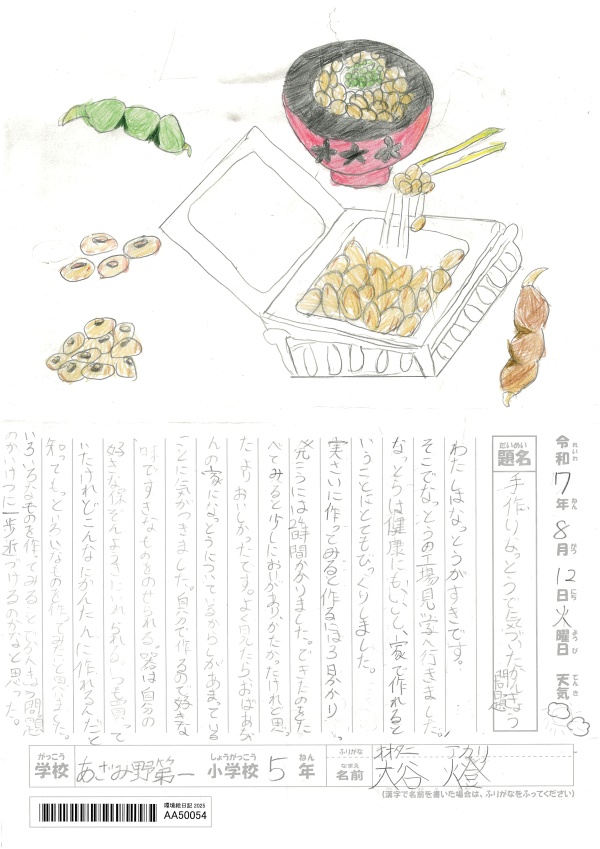 令和7年8月12日火曜日 天気
題名 手作りなっとうで気づいたかんきょう問題
わたしはなっとうがすきです。
そこでなっとうの工場見学へ行きました。
なっとうは健康にもいいし、家で作れると
いうことにとてもびっくりしました。
実さいに作ってみると作るには3分かかり
発こうには24時間かかりました。できたのをた
べてみると少しにおいがあり、かたかったけれど思っ
たよりおいしかったです。よく見たらおばあちゃ
んの家になっとうについているからしがあまっている
ことに気がつきました。自分で作るので好きな
味ですきなものをのせられる。容器は自分の
好きな保ぞんようきに入れられる。いつも買って
いたけれどこんなにかんたんに作れるんだと
知ってもっといろいろなものを作ってみたいと思いました。
いろいろなものを作ってみると「かんきょう」問題
のかいけつに一歩近づけるのかなと思った。
学校 あざみ野第一 小学校 5年
ふりがな オオタニ アカリ
名前 大谷 燈
(漢字で名前を書いた場合は、ふりがなをふってください)
環境絵日記 2025
AA50054